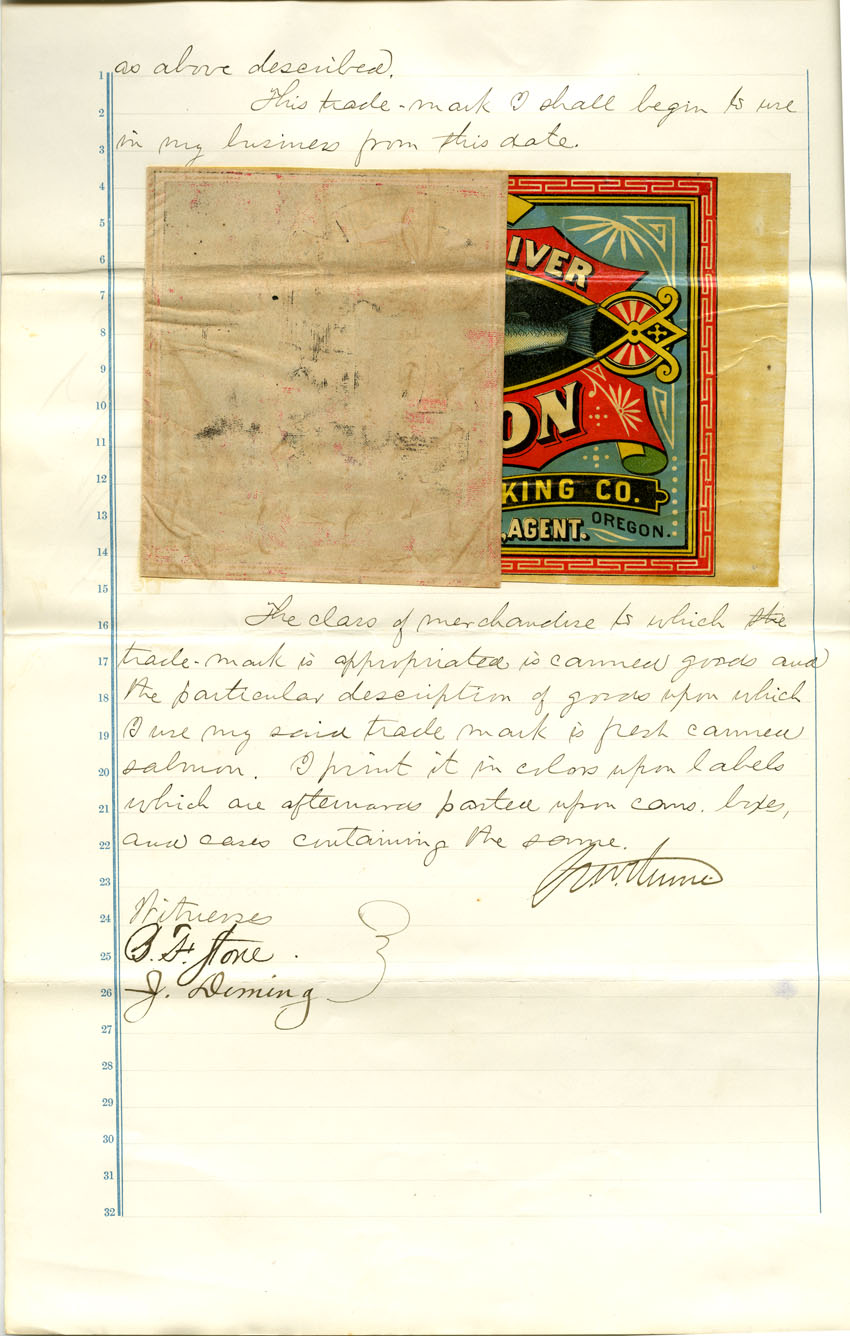 as above described.
1
This trade-mark I shall begin to use
2
in my business from this date.
3
4
5
IVER
6
7
8
9
10
ON
11
12
KING CO.
13
, AGENT. OREGON.
14
15
The class of merchandise to which the
16
trade-mark is appropriated is canned goods and
17
the particular description of goods upon which
18
I use my said trade mark is fresh canned
19
salmon. I print it in colors upon labels
20
which are afterwards pasted upon cans. boxes,
21
and cases containing the same.
22
23
Witnesses
24
B. F. Stone.
25
J. Deming
26
27
28
29
30
31
32